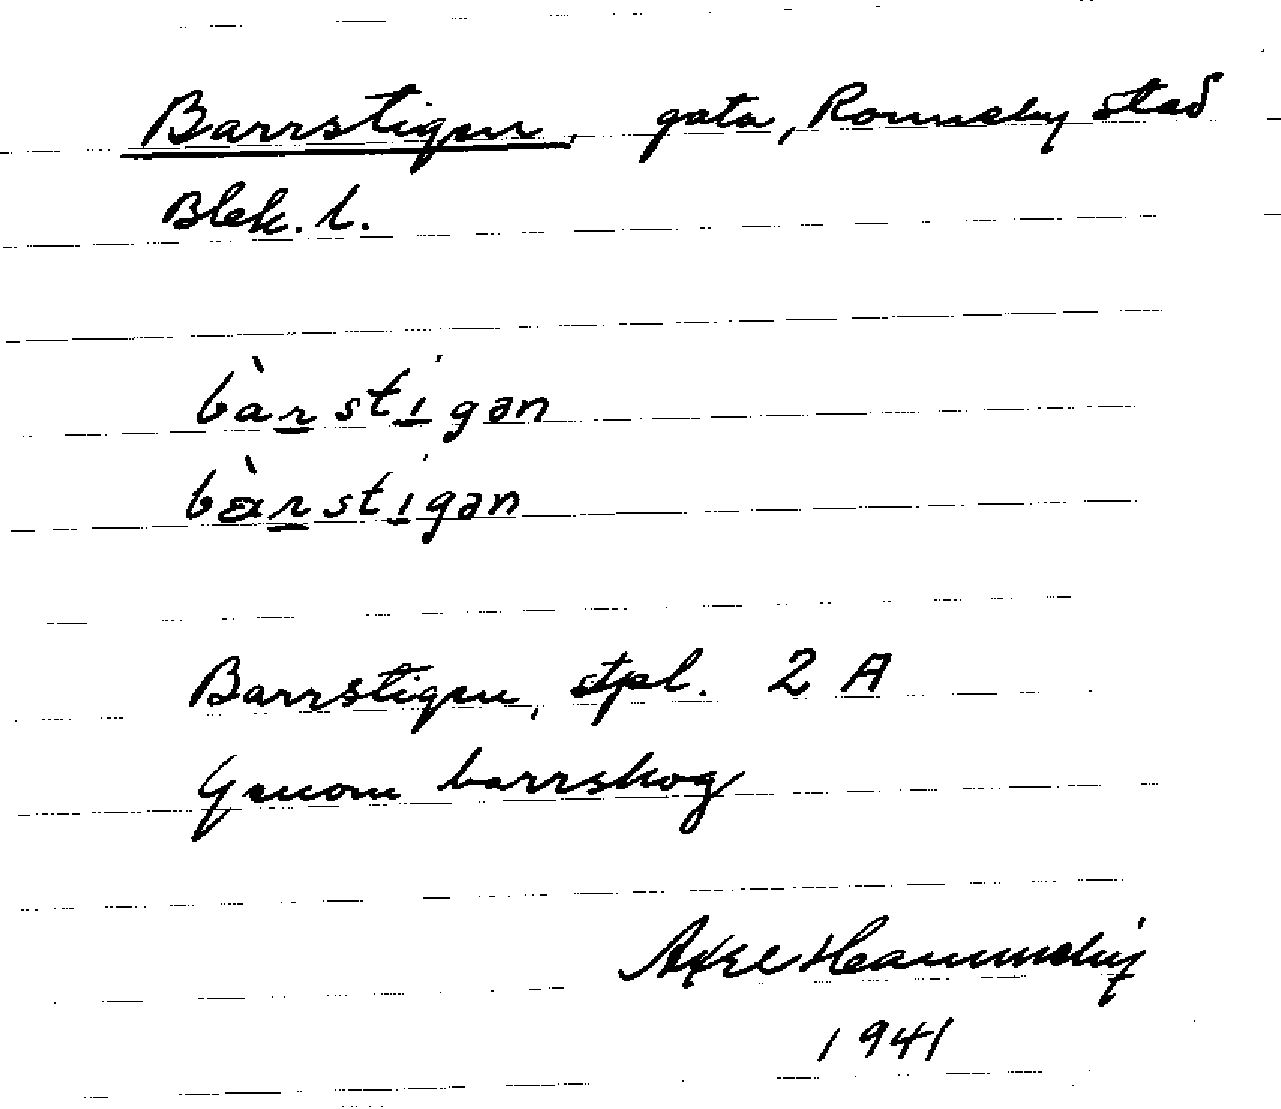 Barrstigen, gata, Ronneby stad
Blek. l.
bàrstigən
bàrstigən
Barrstigen, stpl. 2 A
Genom barrskog
Axel Hammeby
1941